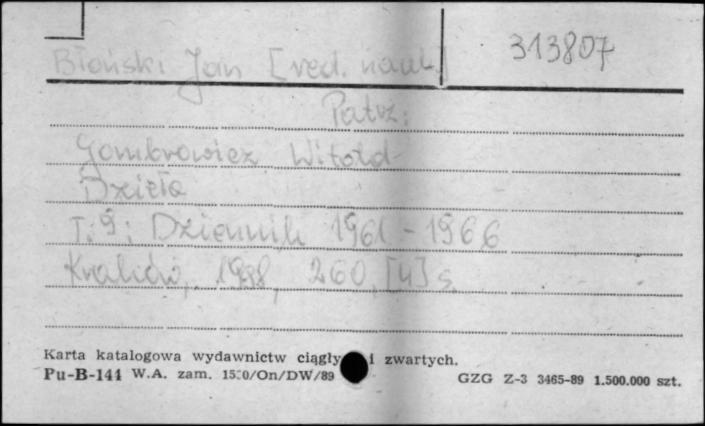 Błoński Jan [red. nauk.] 313807
Patrz:
Gombrowicz Witold
Dzieła
T. 9: Dziennik 1961-1966
Kraków, 1988, 260, [4] s.
Karta katalogowa wydawnictw ciągły i zwartych.
Pu-B-144 W.A. zam. 1530/On/DW/89 GZG Z-3 3465-89 1.500.000 szt.